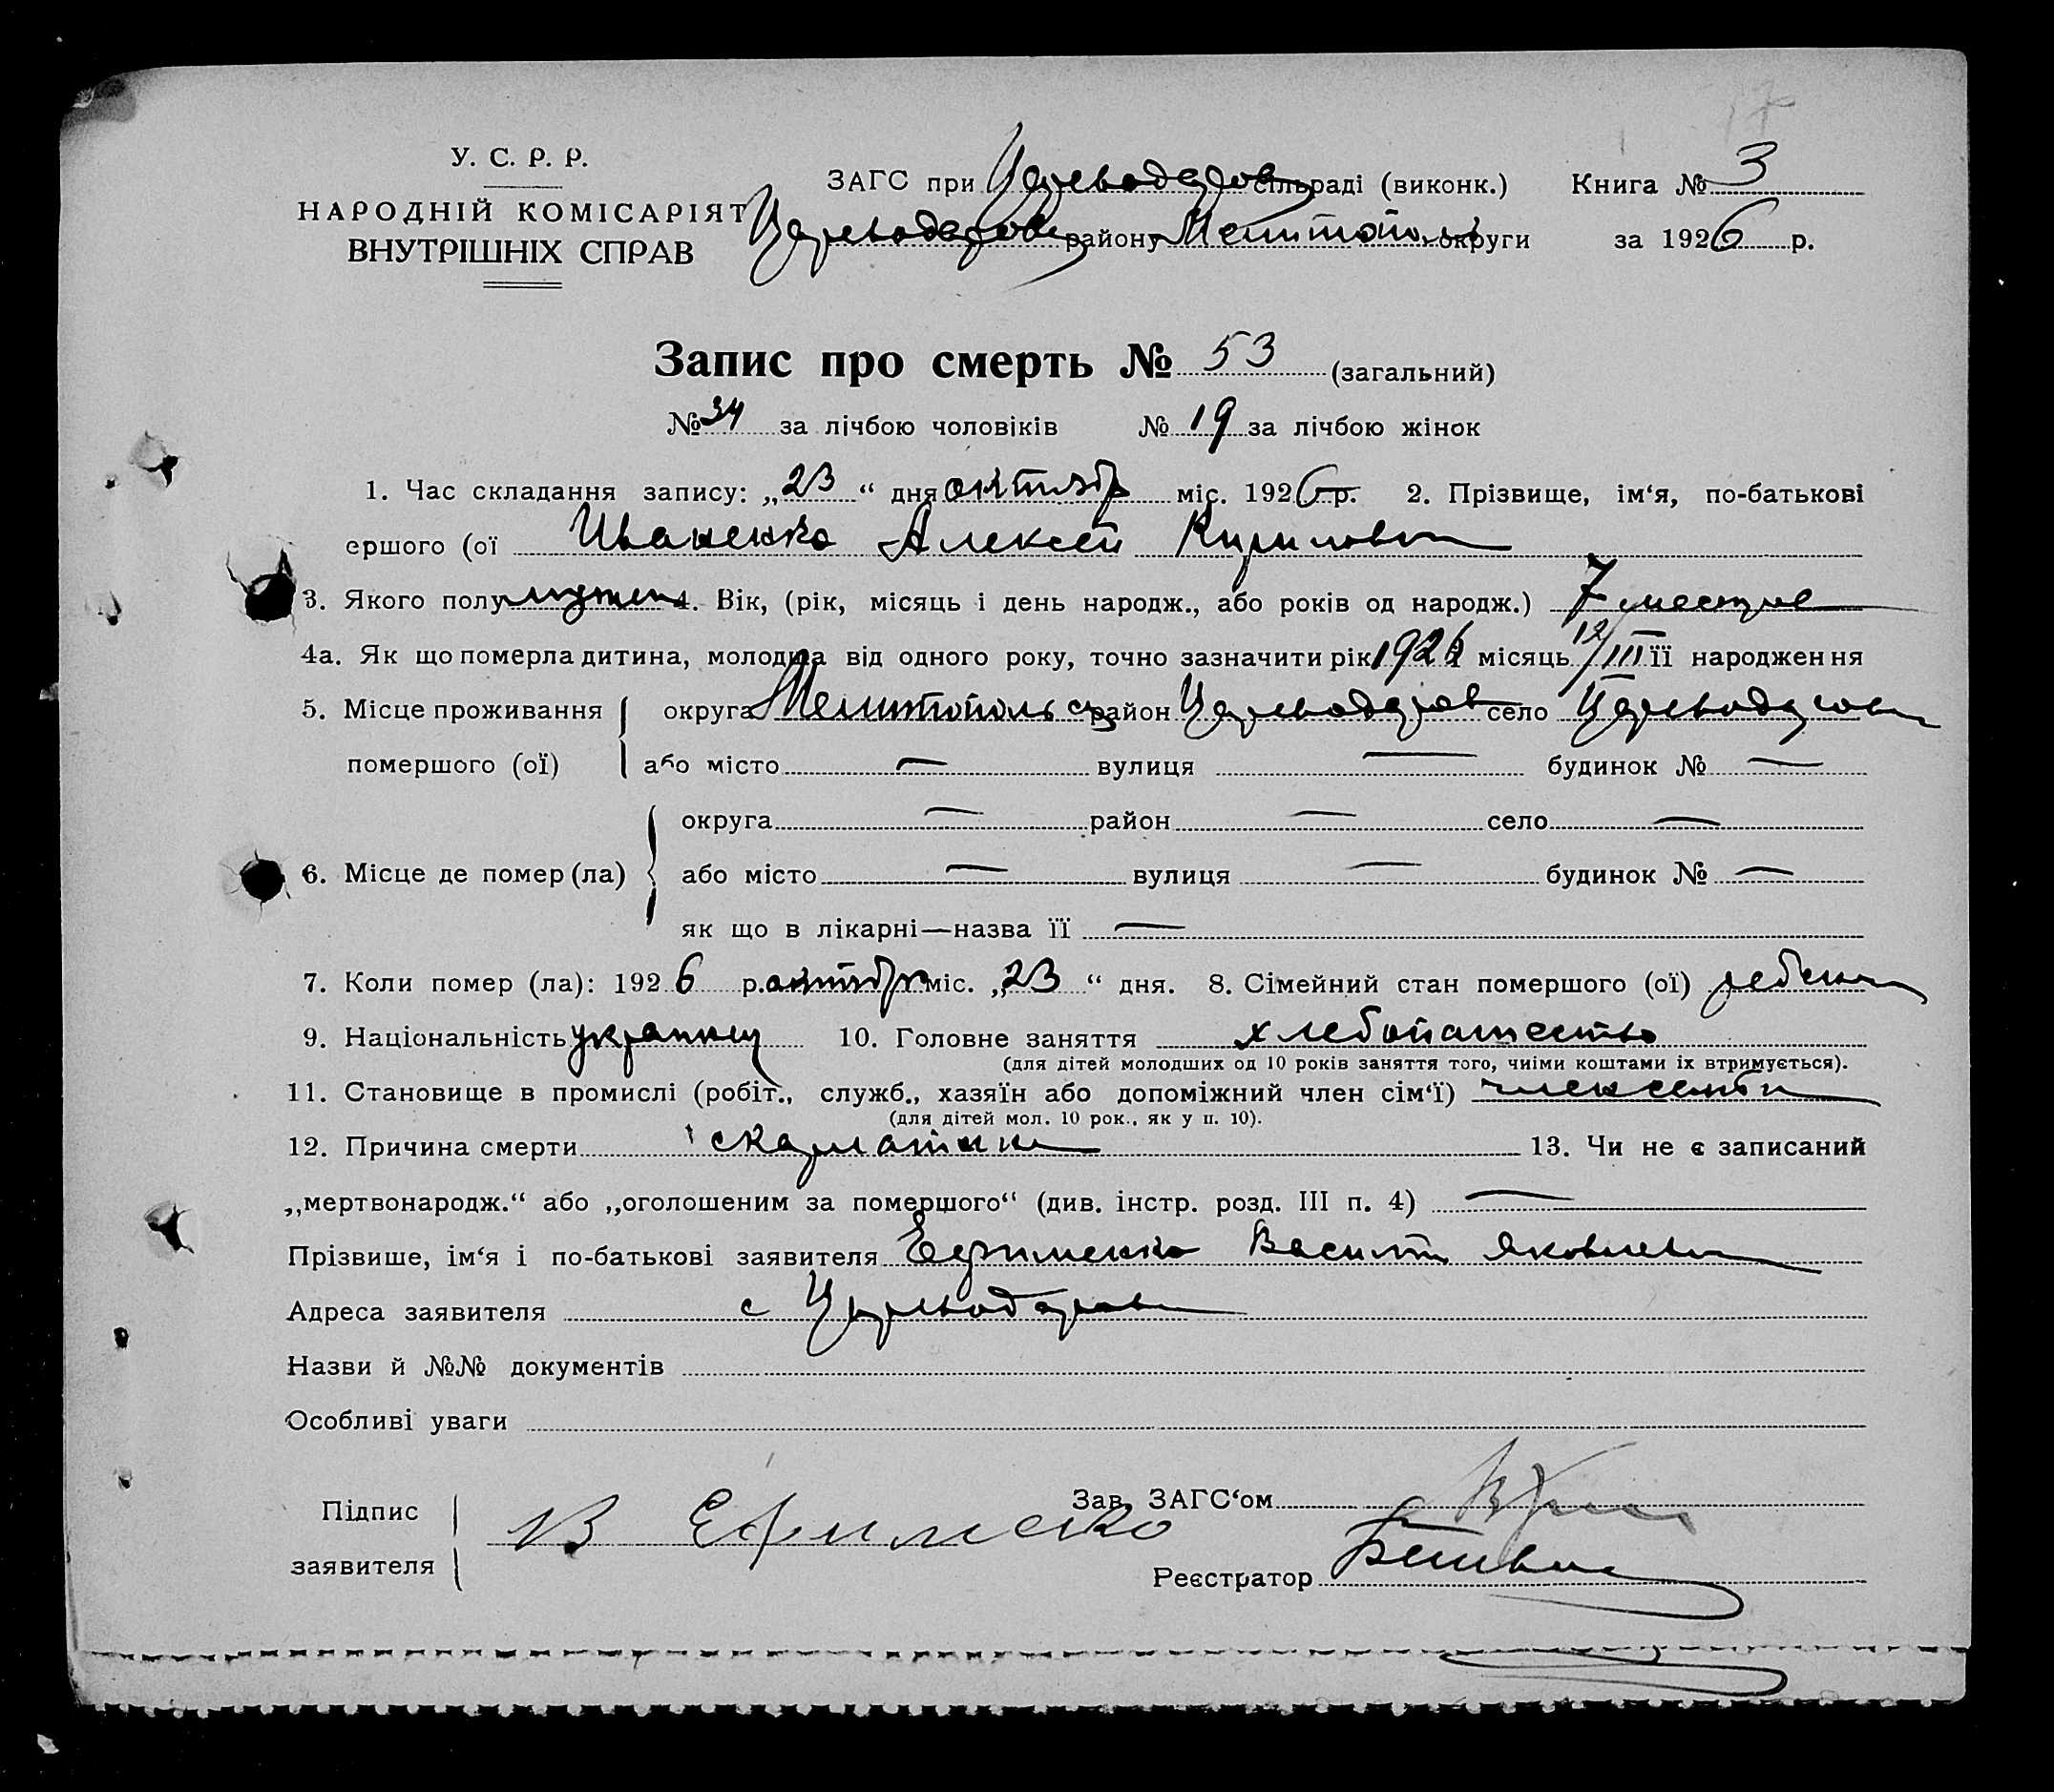 У. С. Р. Р.
НАРОДНІЙ КОМІСАРІЯТ
ВНУТРІШНІХ СПРАВ
ЗАГС при Цареводаров сільраді (виконк.) Книга № 3
Цареводаров району Мелитополь округи за 1926 р.
Запис про смерть № 53 (загальний)
№ 34 за лічбою чоловіків № 19 за лічбою жінок
1. Час складання запису: „23“ дня октябр міс. 1926 р. 2. Прізвище, ім‘я, по-батькові
ершого (ої Иваненко Алексей Кирилович
3. Якого полу мужск 4. Вік, (рік, місяць і день народж., або років од народж.) 7 месяцев
4а. Як що померла дитина, молодша від одного року, точно зазначити рік 1926 місяць 12/III її народження
5. Місце проживання округа Мелитопольск район Цареводаров село Цареводаровк
помершого (ої) або місто — вулиця — будинок № —
округа — район — село —
6. Місце де помер (ла) або місто — вулиця — будинок № —
як що в лікарні—назва її —
7. Коли помер (ла): 1926 р. октября міс. „23“ дня. 8. Сімейний стан помершого (ої) ребенок
9. Національність украинец 10. Головне заняття хлебопашество
(для дітей молодших од 10 років заняття того, чиїми коштами їх втримується).
11. Становище в промислі (робіт., служб., хазяїн або допоміжний член сім‘ї) член семьи
(для дітей мол. 10 рок., як у п. 10).
12. Причина смерти скарлатина 13. Чи не є записаний
„мертвонародж.“ або „оголошеним за помершого“ (див. інстр. розд. III п. 4) —
Прізвише, ім‘я і по-батькові заявителя Ефименко Василий Яковлевич
Адреса заявителя с Цареводаровк
Назви й №№ документів
Особливі уваги
Підпис
заявителя
В Ефименко
Зав. ЗАГС‘ом
Реєстратор